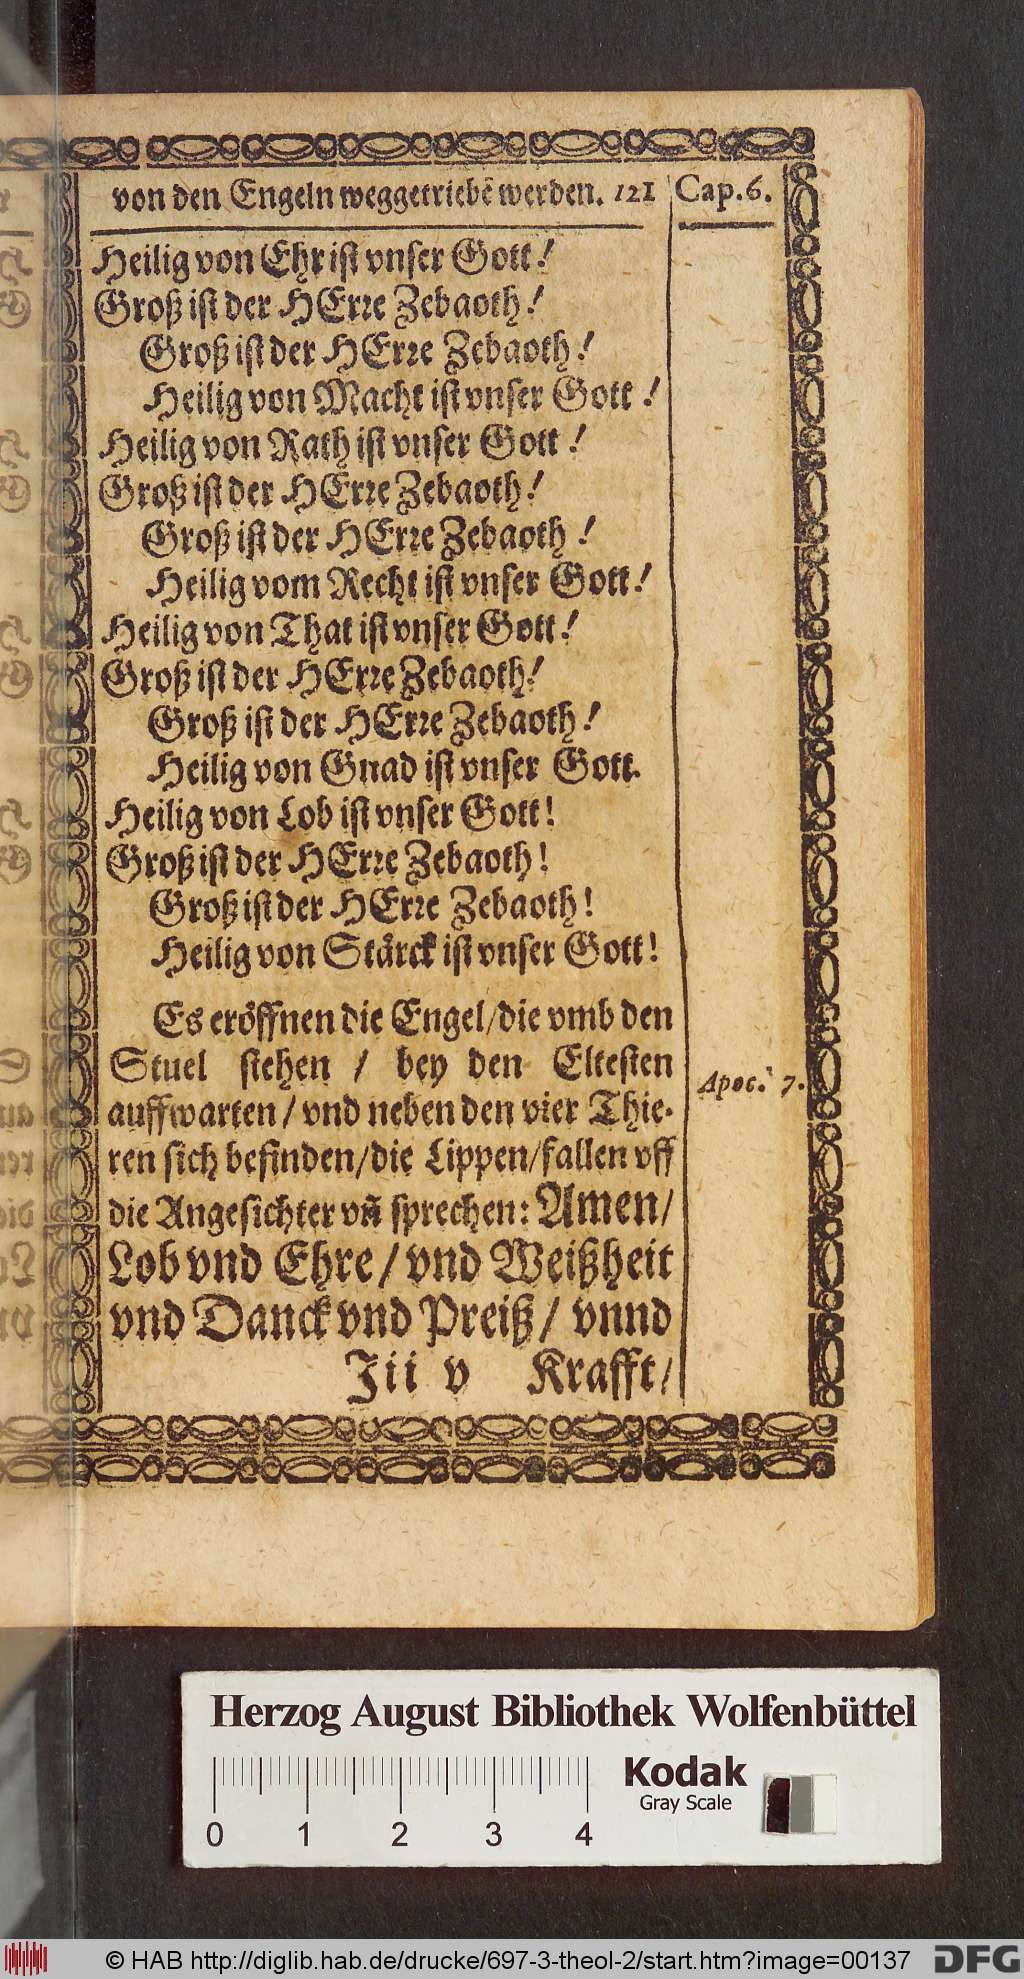 von den Engeln weggetriebẽ werden. 121 Cap. 6.
Heilig von Ehr ist vnser Gott!
Groß ist der HErꝛe Zebaoth!
Groß ist der HErꝛe Zebaoth!
Heilig von Macht ist vnser Gott!
Heilig von Rath ist vnser Gott!
Groß ist der HErꝛe Zebaoth!
Groß ist der HErꝛe Zebaoth!
Heilig vom Recht ist vnser Gott!
Heilig von That ist vnser Gott!
Groß ist der HErꝛe Zebaoth!
Groß ist der HErꝛe Zebaoth!
Heilig von Gnad ist vnser Gott.
Heilig von Lob ist vnser Gott!
Groß ist der HErꝛe Zebaoth!
Groß ist der HErꝛe Zebaoth!
Heilig von Stärck ist vnser Gott!
Es eröffnen die Engel/die vmb den
Stuel stehen / bey den Eltesten
auffwarten / vnd neben den vier Thie-
ren sich befinden/die Lippen/fallen vff
die Angesichter vñ sprechen: Amen/
Lob vnd Ehre / vnd Weißheit
vnd Danck vnd Preiß / vnnd
Jii v Krafft/
Apoc. 7.
Herzog August Bibliothek Wolfenbüttel
Kodak
Gray Scale
0 1 2 3 4
© HAB http://diglib.hab.de/drucke/697-3-theol-2/start.htm?image=00137
DFG